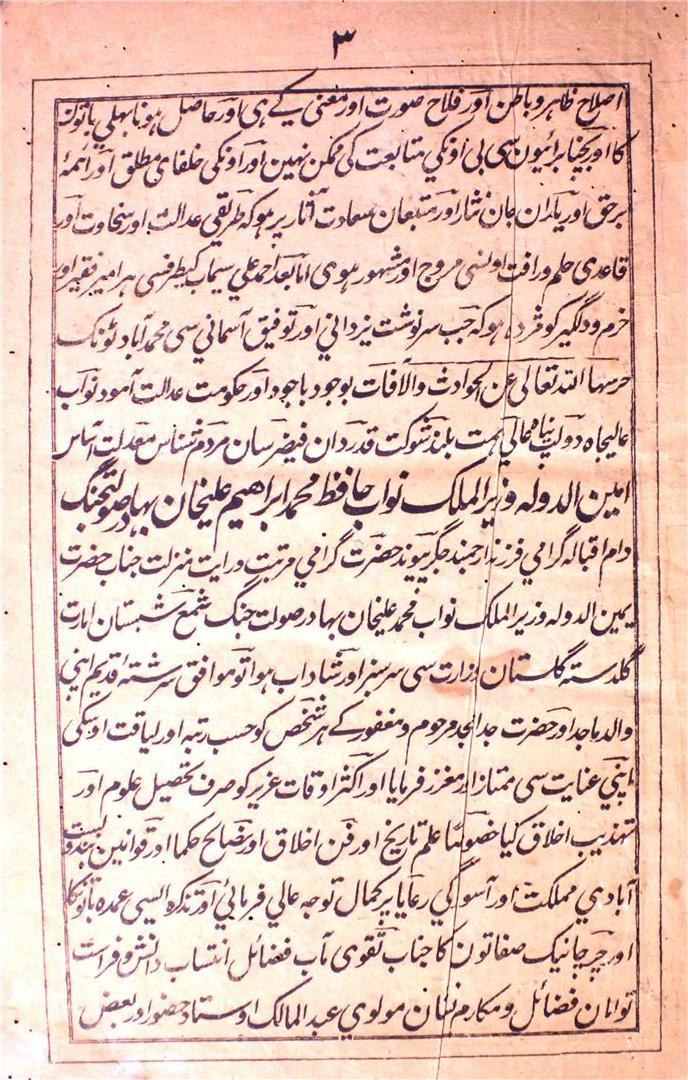 ۳
اصلاح ظاہر وباطن اور فلاح صورت اور معنی کے ہی اور حاصل ہونا بھلی باتون
کا اور بچنا برائیون سی بی اونکی متابعت کی ممکن نہین اور اونکی خلفای مطلق اور ائمۂ
برحق اور یاران جان نثار اور متبعان سعادت آثار پر ہو کہ طریقی عدالت اور سخاوت اور
قاعدی حلم ورافت اونسی مروج اور مشہور ہوی اما بعد احمد علی سیماب کیطرفسی ہر امیر فقیر اور
خرم ودلگیر کو مژدہ ہو کہ جب سرنوشت یزدانی اور توفیق آسمانی سی محمد آباد ٹونک
حرسہا اللہ تعالی عن الحوادث والآفات بوجود باجود اور حکومت عدالت آمود نواب
عالیجاہ دولت پناہ عالی ہمت بلند شوکت قدردان فیضرسان مردم شناس معدلت اساس
امین الدولہ وزیر الملک نواب حافظ محمد ابراھیم علیخان بہادر صولتجنگ
دام اقبالہ گرامی فرزند ارجمند جگر پیوند حضرت گرامی مرتبت ورایت منزلت جناب حضرت
یمین الدولہ وزیر الملک نواب محمد علیخان بہادر صولت جنگ شمع شبستان امارت
گلدستہ گلستان وزارت سی سرسبز اور شاداب ہوا تو موافق سرشتۂ قدیم اپنی
والد ماجد اور حضرت جد امجد مرحوم ومغفور کے ہر شخص کو حسب رتبہ اور لیاقت اوسکی
اپنی عنایت سی ممتاز اور معزز فرمایا اور اکثر اوقات عزیز کو صرف تحصیل علوم اور
تہذیب اخلاق کیا خصوصًا علم تاریخ اور فن اخلاق اور نصائح حکما اور قوانین بندوبست
آبادی مملکت اور آسودگی رعایا پر کمال توجہ عالی فرمائی اور تذکرہ ایسی عمدہ باتونکا
اور چرچا نیک صفاتون کا جناب تقوی مآب فضائل انتساب دانش وفراست
توامان فضائل ومکارم نشان مولوی عبد المالک اوستاد حضور اور بعض